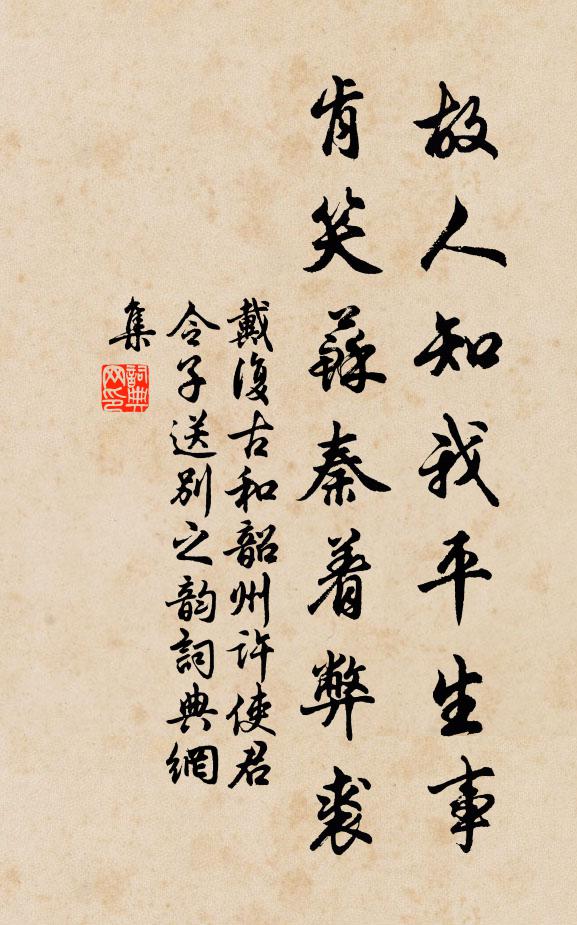 故人知我平生事
肯笑蘇秦着弊裘
戴復古和韶州許使君
令子送別之韵詞典網
集
詞典网印